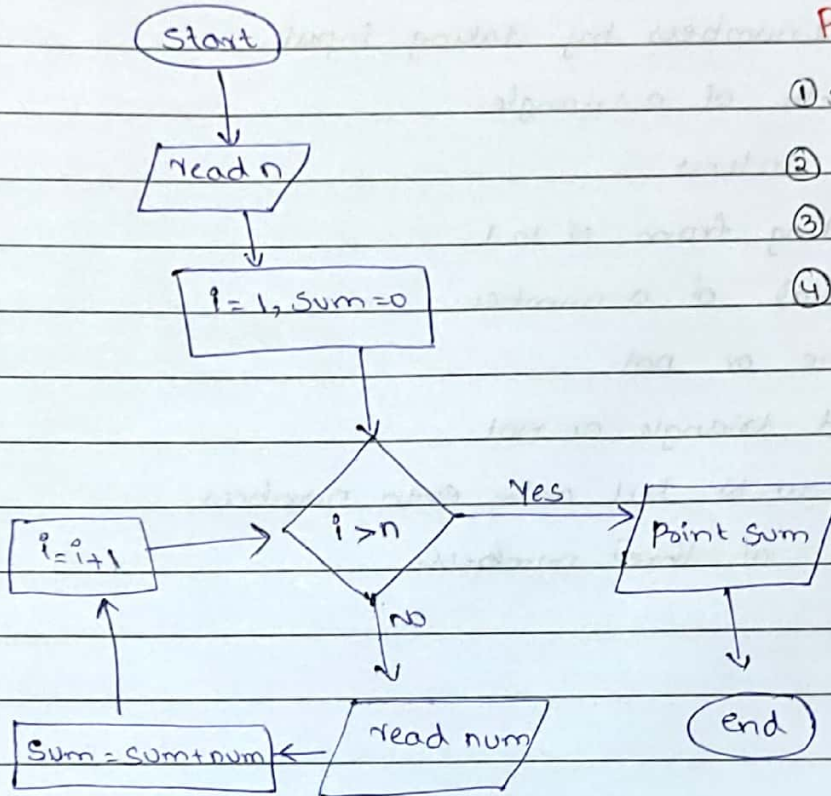 Start
read n
i = 1, sum = 0
i > n
Yes
Print sum
end
NO
read num
sum = sum + num
i = i + 1
①
②
③
④